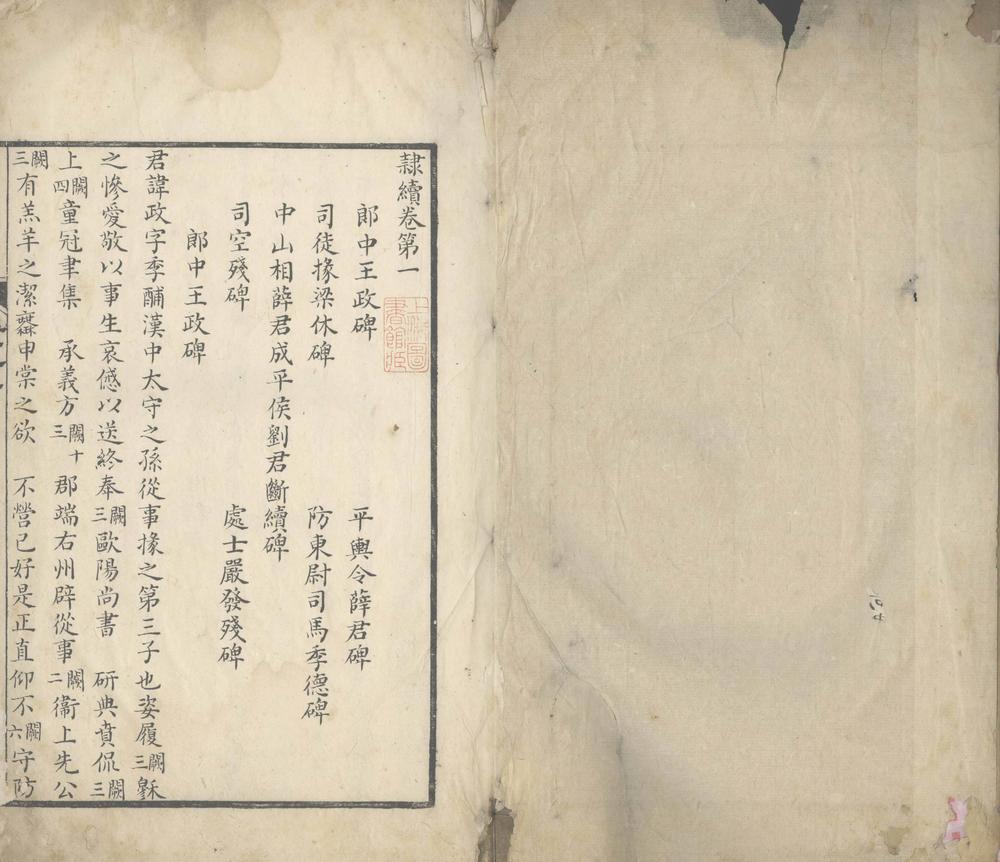 隸續卷第一
郎中王政碑 平輿令薛君碑
司徒掾梁休碑 防東尉司馬季德碑
中山相薛君成平侯劉君斷續碑
司空殘碑 處士嚴發殘碑
郎中王政碑
君諱政字季酺漢中太守之孫從事掾之第三子也姿履闕三
之慘愛敬以事生哀慼以送終奉闕三歐陽尚書 研典賁侃闕三
上闕四童冠聿集 承義方闕十三郡端右州辟從事闕二衞上先公
闕三有羔羊之潔 申棠之欲 不營己好是正直仰不闕六守防